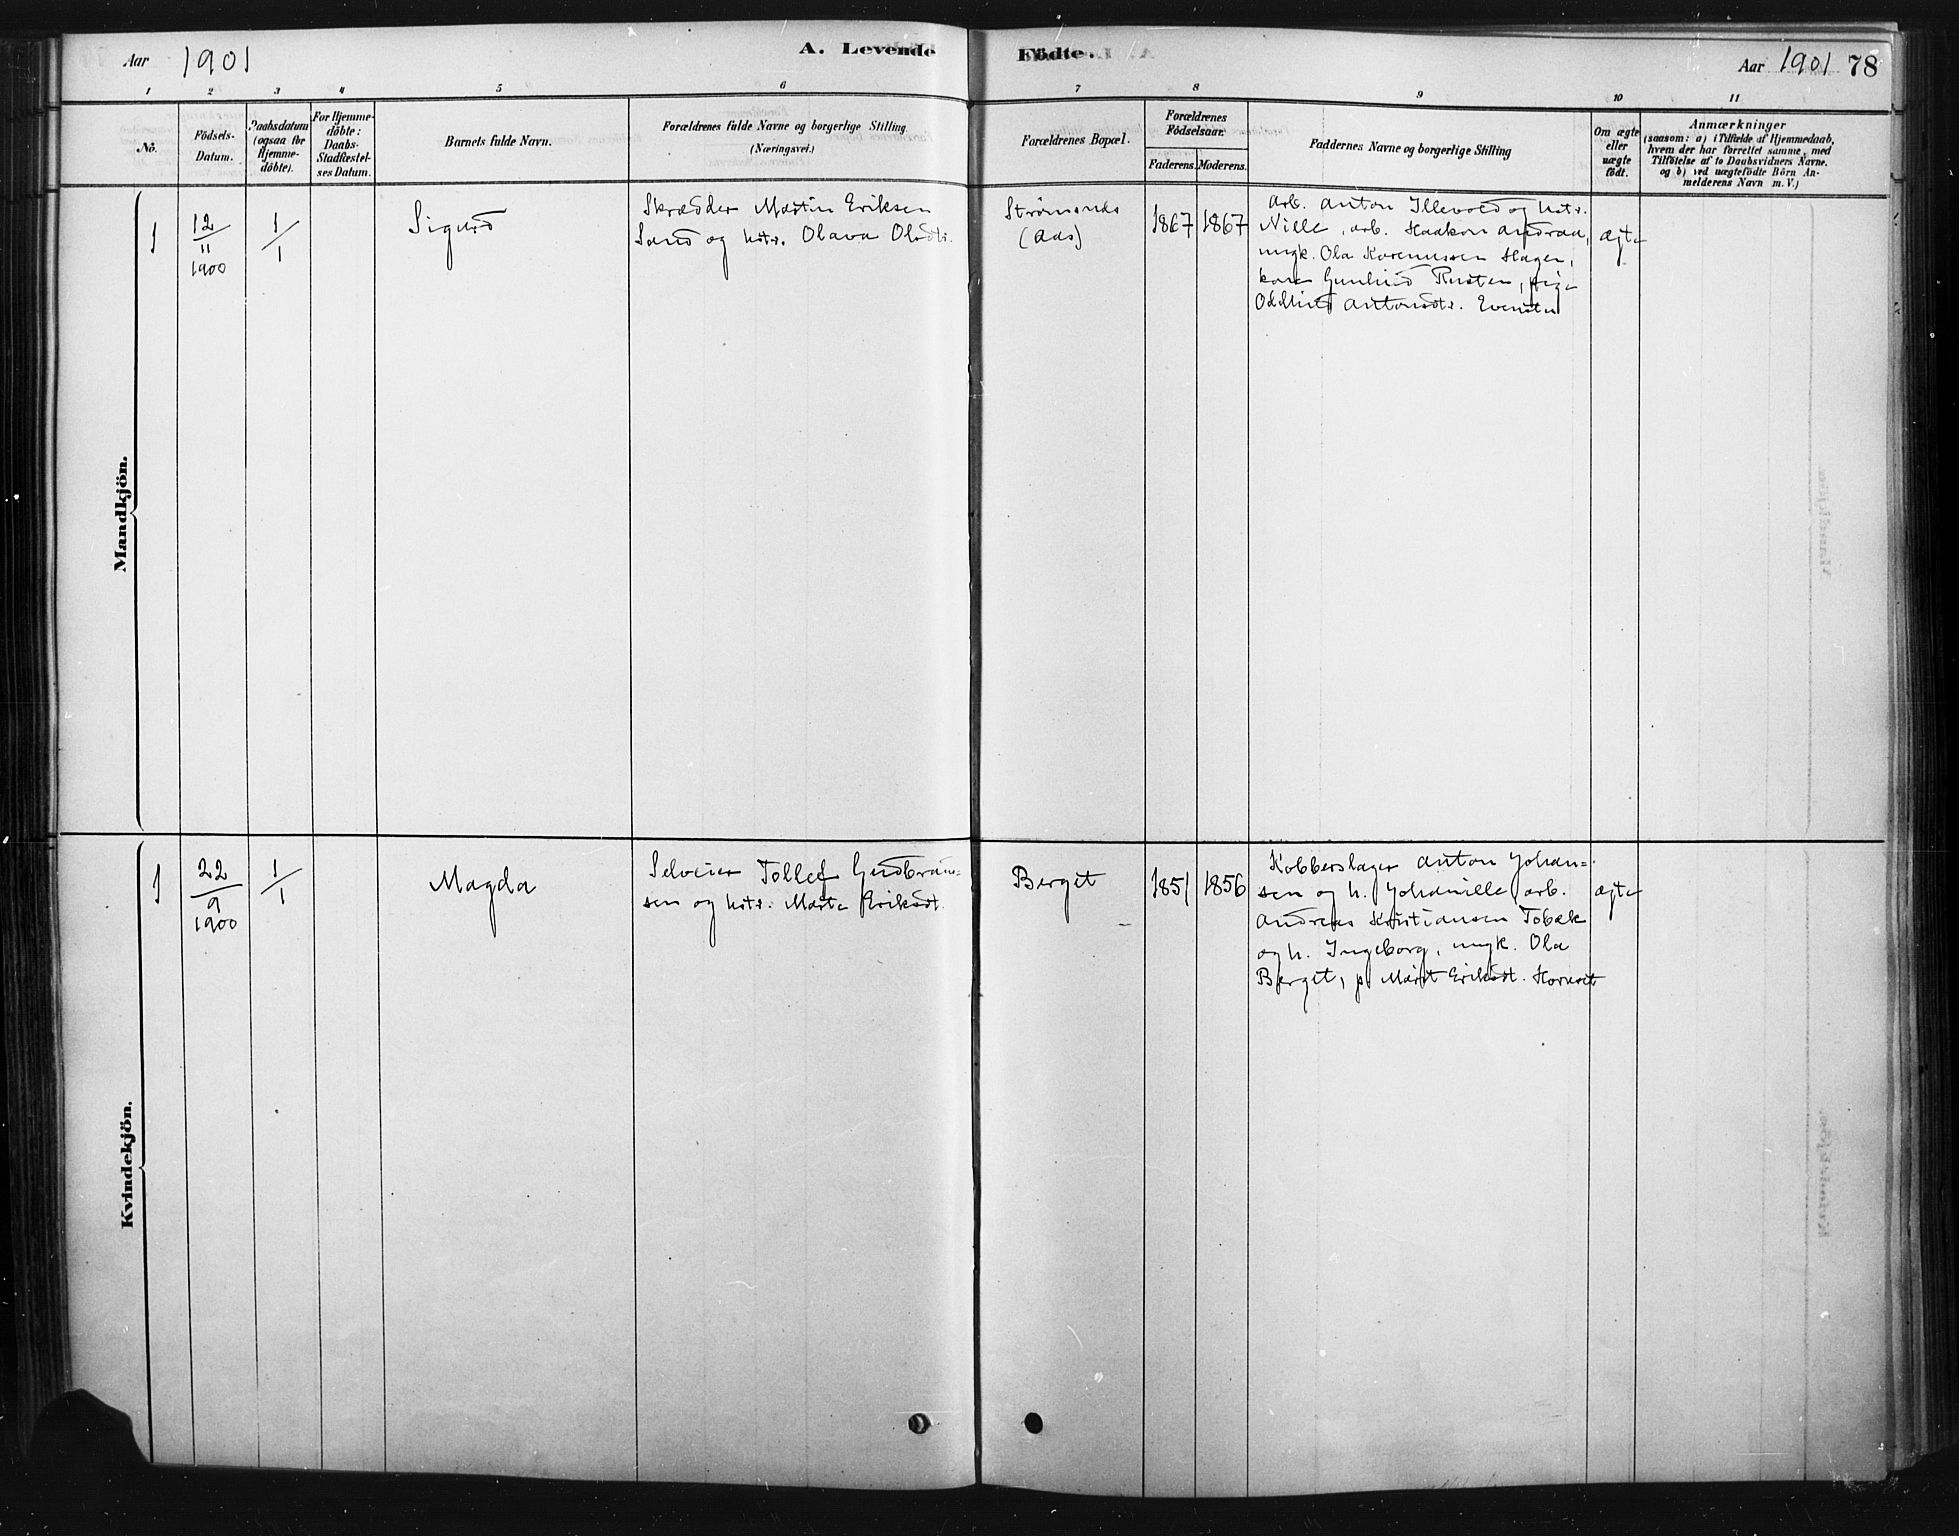 Aar 1901
A. Levende Födte.
Aar 1901 78
1 2 3 4 5 6 7 8 9 10 11
No.
Födsels-
Datum.
Daabsdatum
(ogsaa for
Hjemme-
döbte).
For Hjemme-
döbte:
Daabs-
Stadfæstel-
ses Datum.
Barnets fulde Navn.
Forældrenes fulde Navne og borgerlige Stilling
(Næringsvei.)
Forældrenes Bopæl.
Forældrenes
Födselsaar.
Faderens. Moderens.
Faddernes Navne og borgerlige Stilling
Om ægte
eller
uægte
födt.
Anmærkninger
(saasom: a) i Tilfælde af Hjemmedaab,
hvem der har forrettet samme, med
Tilföielse af to Daabsvidners Navne.
og b) ved uægtefödte Börn An-
melderens Navn m. V.)
Mandkjön.
1
12
11
1900
1/1
Sigurd
Skrædder Martin Eriksen
Sand og hstr. Olava Olsdtr.
Strømsnes
(Aas)
1867 1867
Arb. Anton Illevold og hstr.
Nille, arb. Haakon Andraa,
ungk. Ola Karenussen Hagen,
kone Gunhild Rusten, pige
Oddlild Antonsdtr. Evensten
ægte
Kvindekjön.
1
22
9
1900
1/1
Magda
Selveier Tollef Gudbrand-
sen og hstr. Marte Eriksdt.
Berget
1851 1856
Kobberslager Anton Johan-
sen og h. Johanille, arb.
Andreas Kristiansen Tobæk
og h. Ingeborg, ungk. Ola
Berget, p. Marit Eriksdt.
ægte